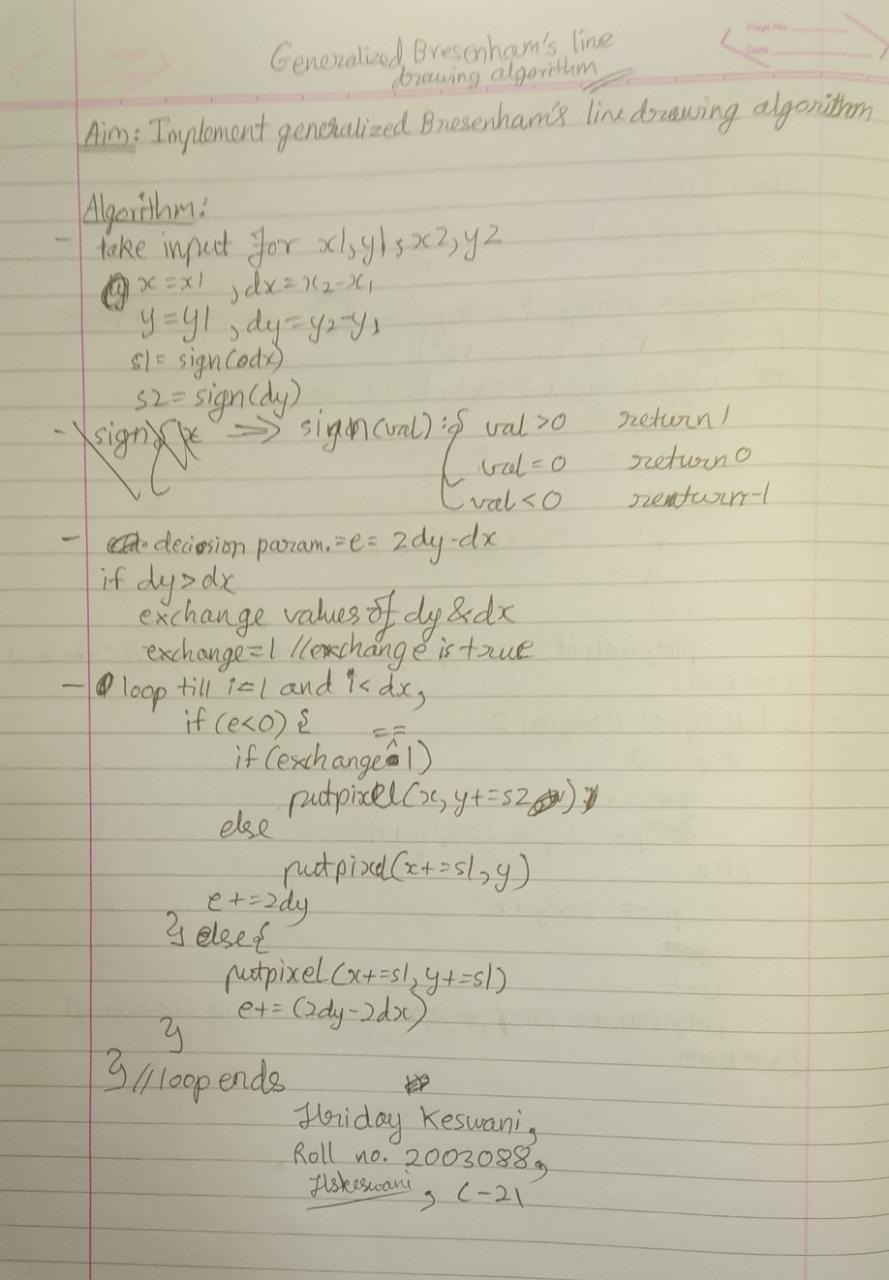 Generalized Bresenham's line
drawing algorithm
Aim: Implement generalized Bresenham's line drawing algorithm
Algorithm:
- take input for x1,y1,x2,y2
x=x1 , dx=x2-x1
y=y1 , dy=y2-y1
s1= sign(dx)
s2= sign(dy)
- ⇒ sign(val): { val>0 return 1
val=0 return 0
val<0 return -1
- decision param.=e= 2dy-dx
if dy>dx
exchange values of dy & dx
exchange=1 //exchange is true
- loop till i=1 and i<dx,
if (e<0) {
if (exchange == 1)
putpixel(x, y+=s2);
else
putpixel(x+=s1, y)
e+=2dy
} else {
putpixel(x+=s1, y+=s1)
e+= (2dy-2dx)
}
} //loop ends
Hriday Keswani,
Roll no. 2003088,
Hskeswani, C-21